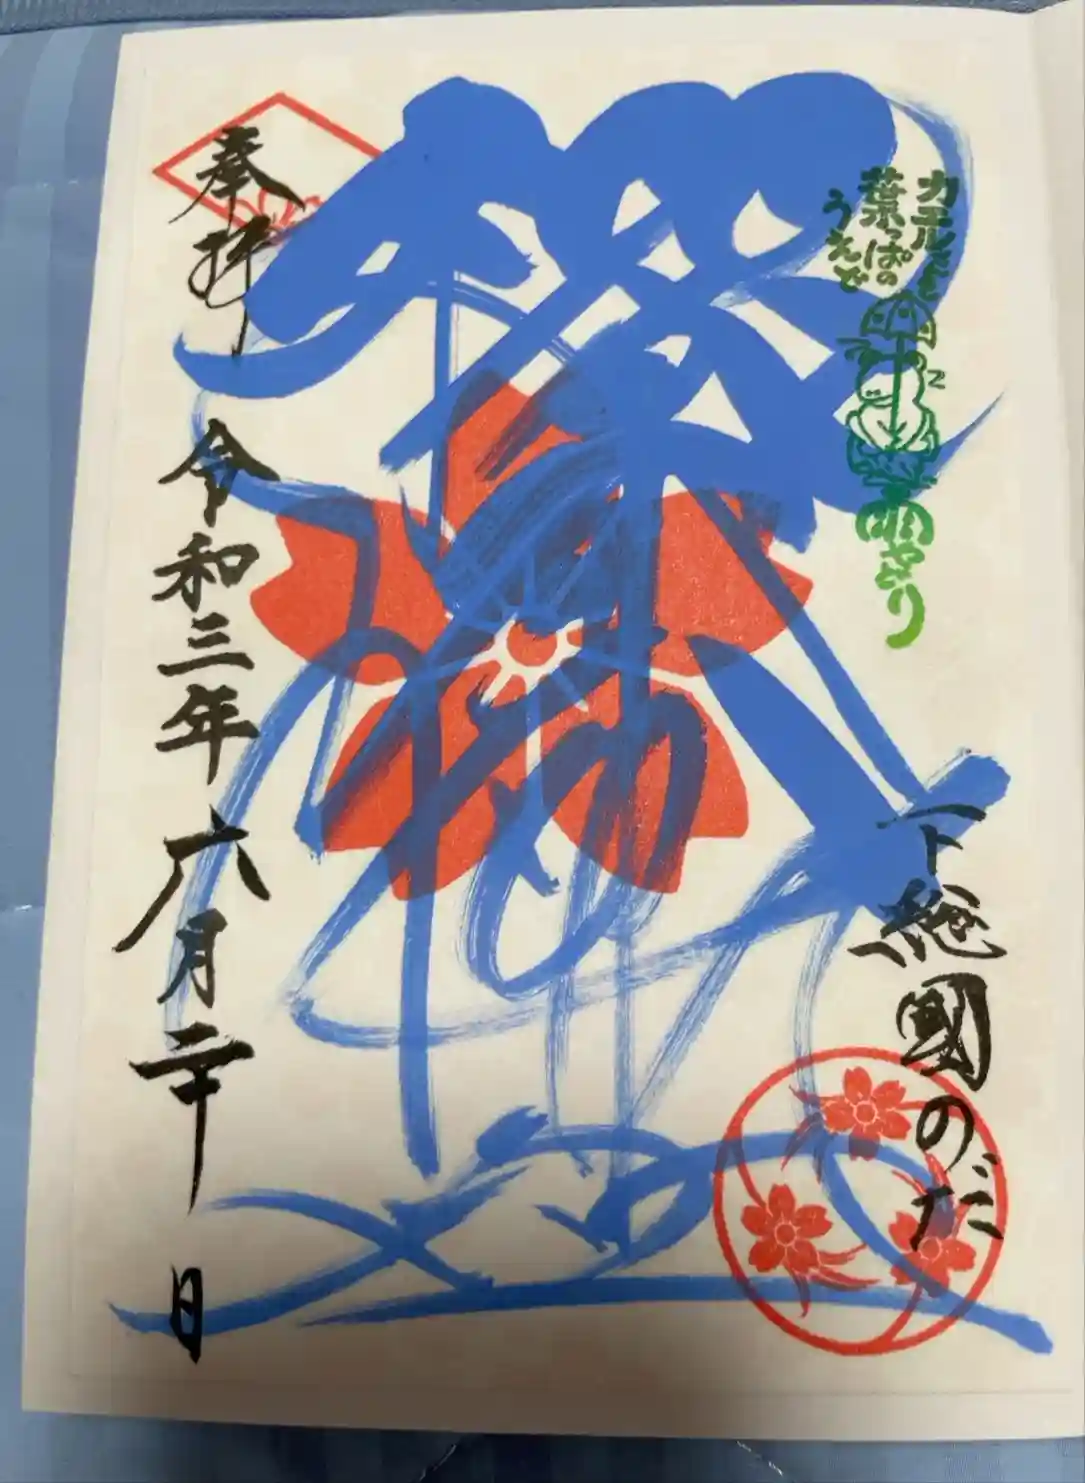 カエルも
葉っぱの
うえで
雨やどり
下総國のだ
奉拝
令和三年六月二十日